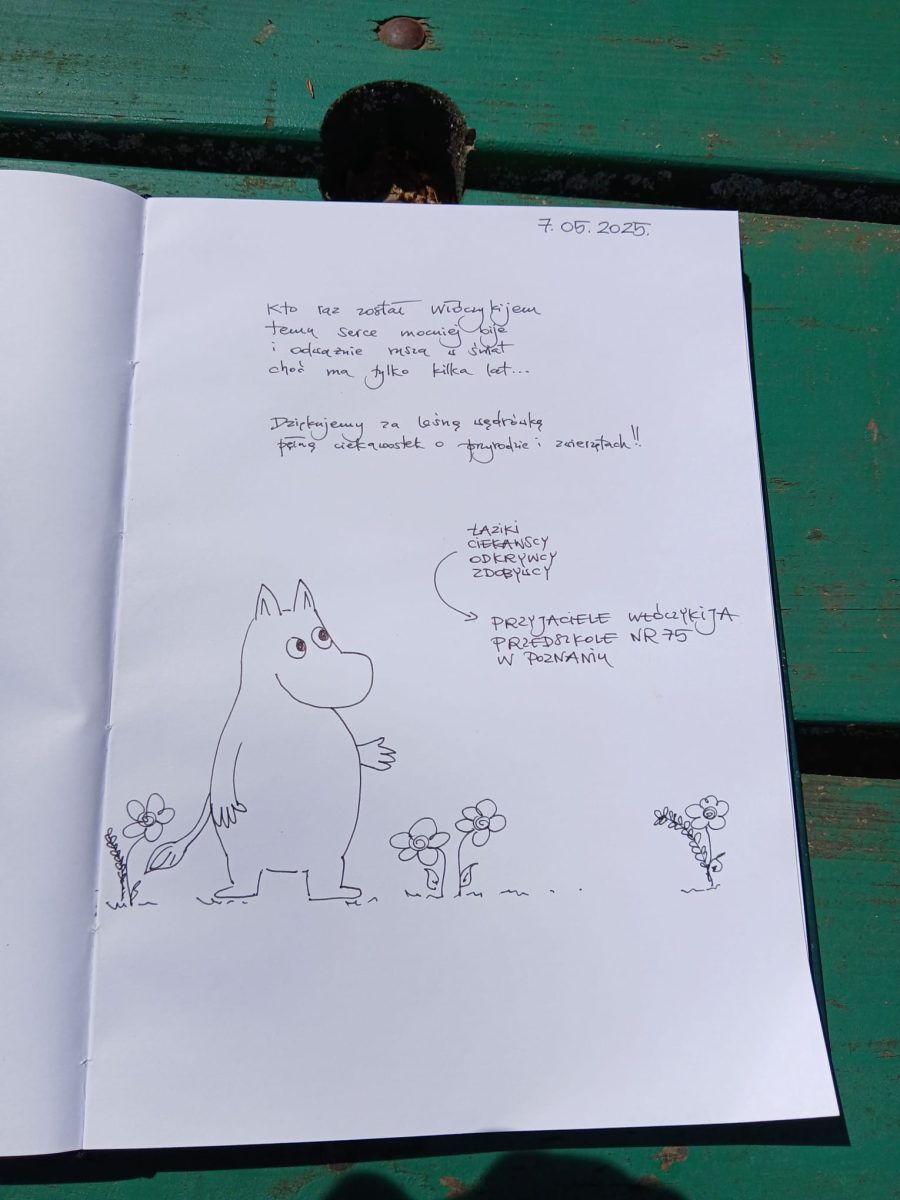 7.05.2025.
Kto raz został Włóczykijem
temu serce mocniej bije
i odważnie rusza w świat
choć ma tylko kilka lat...
Dziękujemy za leśną wędrówkę
pełną ciekawostek o przyrodzie i zwierzętach!!
ŁAZIKI
CIEKAWSCY
ODKRYWCY
ZDOBYWCY
PRZYJACIELE WŁÓCZYKIJA
PRZEDSZKOLE NR 75
W POZNANIU